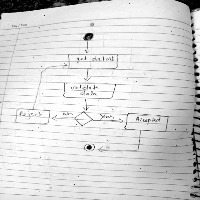 get details
validate
data
No
Yes
Reject
Accepted